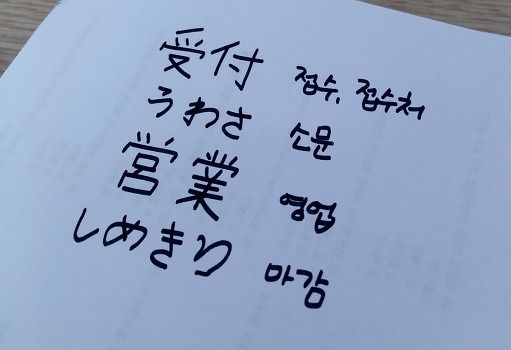 受付 접수, 접수처
うわさ 소문
営業 영업
しめきり 마감